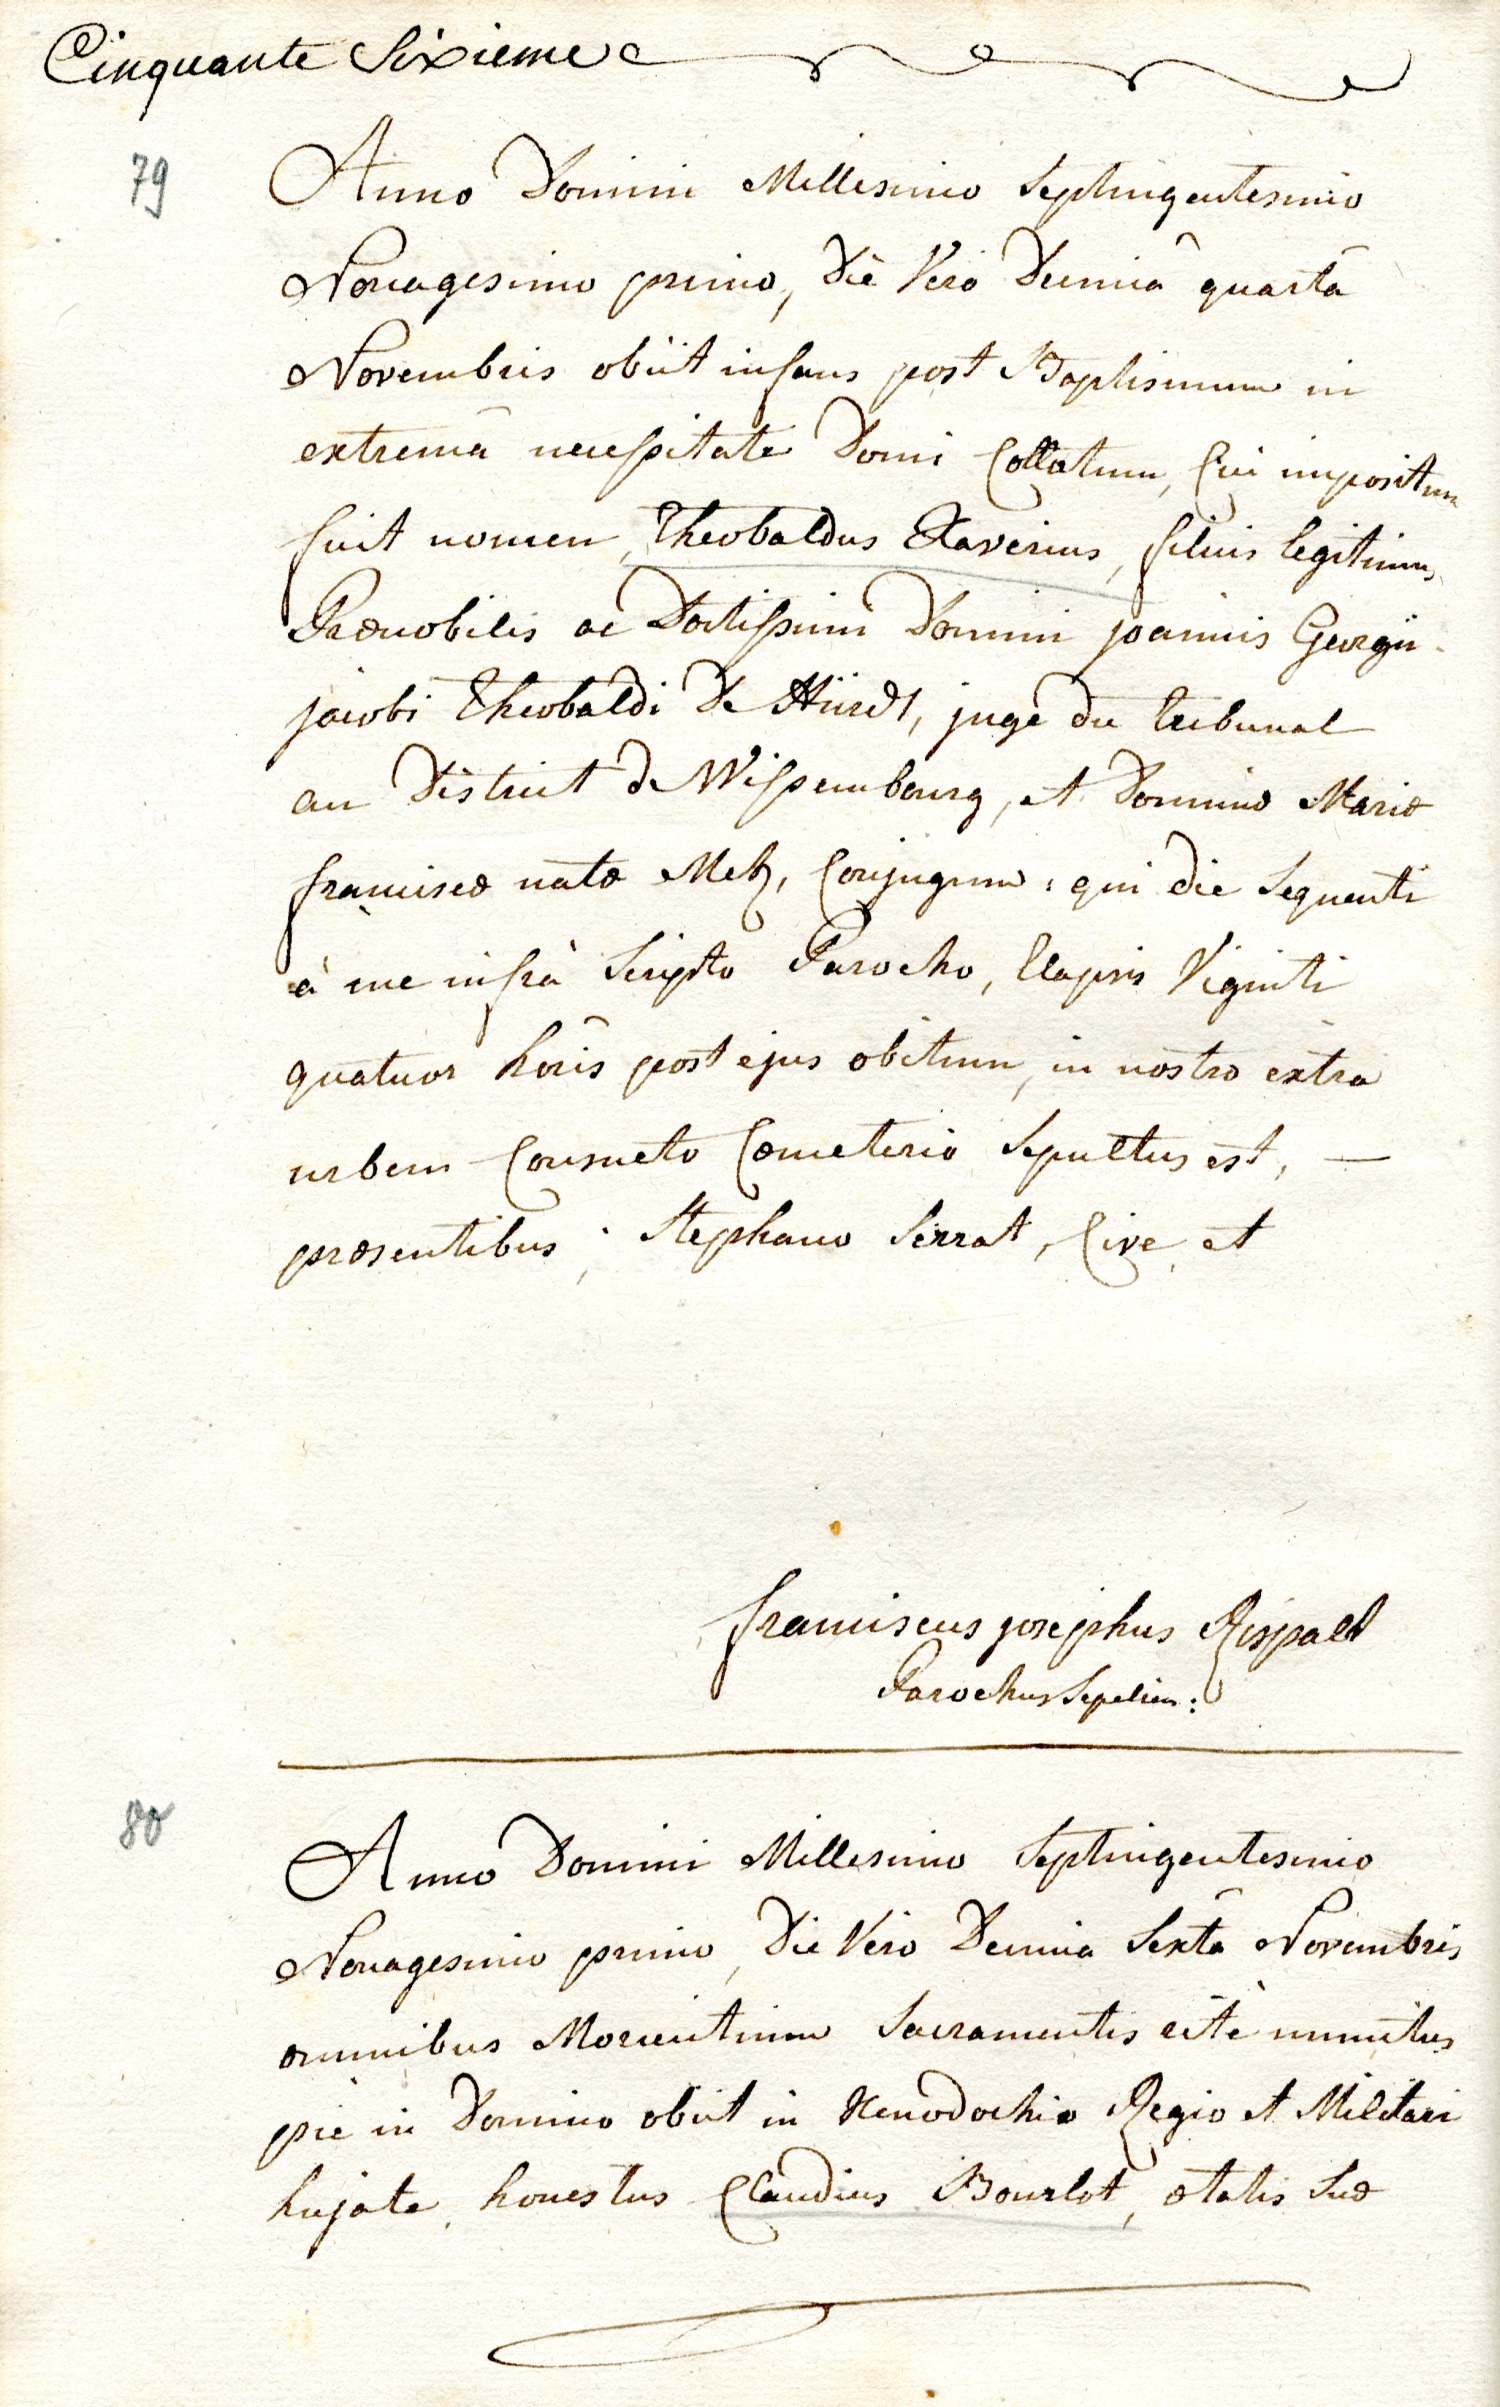 Cinquante Sixieme
79
Anno Domini Millesimo Septingentesimo
Nonagesimo primo, Die Vero Decimâ quartâ
Novembris obiit infans post Baptismum in
extremâ necessitate Domi Collatum, Cui impositum
fuit nomen, Theobaldus Xaverius, filius legitimus,
Prænobilis ac Doctissimi Domini joannis Georgii
jacobi Theobaldi De Hürdt, juge du tribunal
au District de Wissembourg, et Dominæ Mariæ
franciscæ natæ Metz, Conjugum: qui die sequenti
à me infrà Scripto Parocho, Elapsis Viginti
quatuor horis post ejus obitum, in nostro extra
urbem Consueto Cœmeterio Sepultus est, —
præsentibus; Stephano Serrat, Cive, et
franciscus josephus Rispalt
Parochus Sepeliens:
80
Anno Domini Millesimo Septingentesimo
Nonagesimo primo, Die Vero Decimâ Sextâ Novembris
omnibus Morientium Sacramentis ritè munitus
piè in Domino obiit in Xenodochio Regio et Militari
hujate, honestus Claudius Bourlot, ætatis Suæ